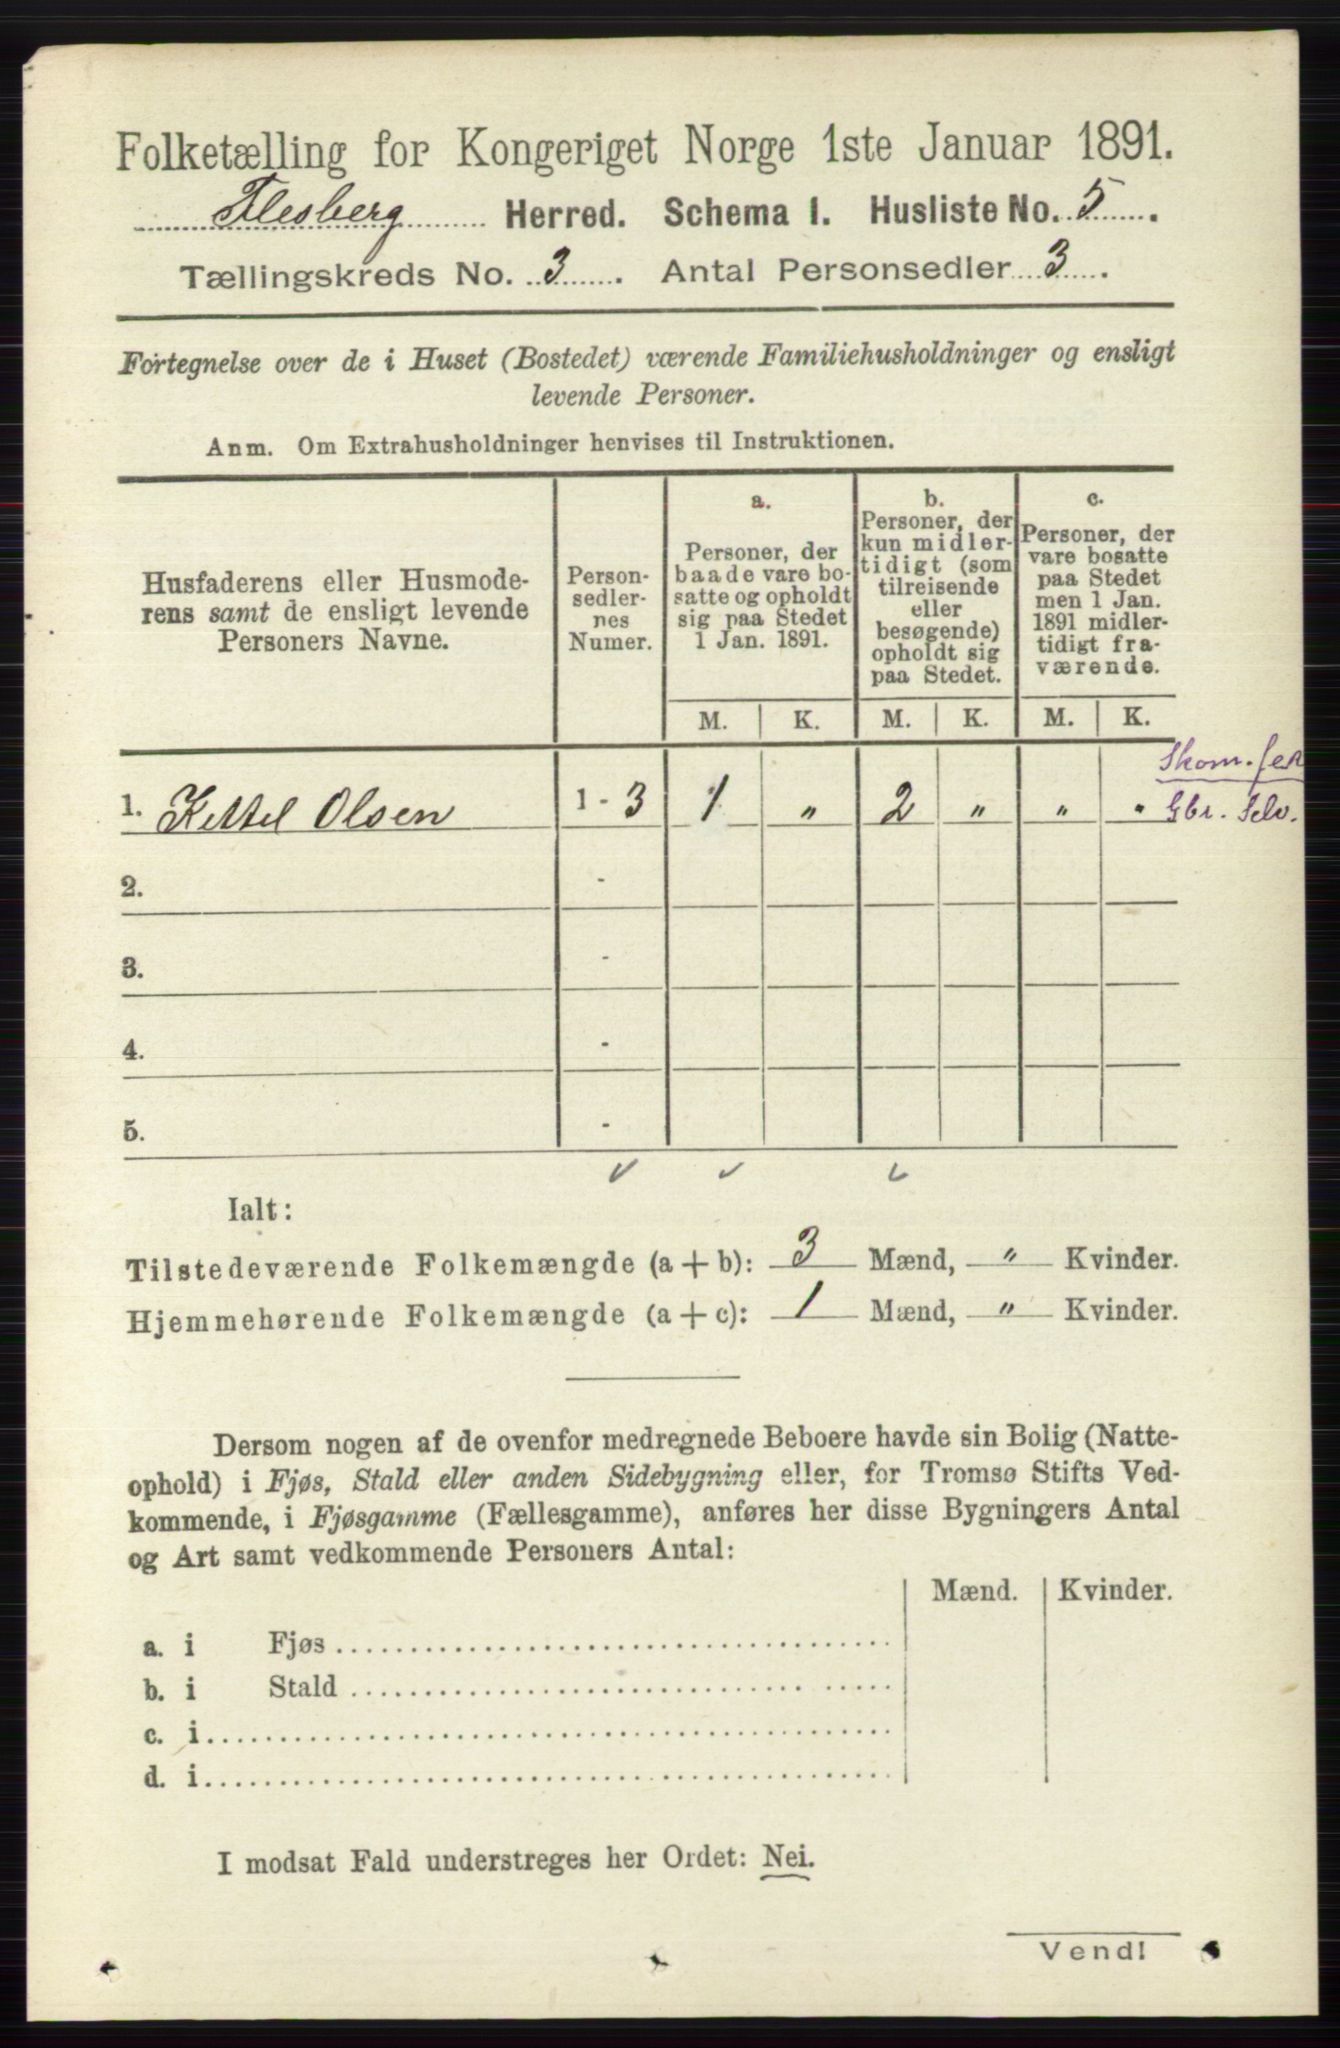 Folketælling for Kongeriget Norge 1ste Januar 1891.
Flesberg Herred. Schema I. Husliste No. 5.
Tællingskreds No. 3. Antal Personsedler 3.
Fortegnelse over de i Huset (Bostedet) værende Familiehusholdninger og ensligt
levende Personer.
Anm. Om Extrahusholdninger henvises til Instruktionen.
Husfaderens eller Husmode-
rens samt de ensligt levende
Personers Navne.
Person-
sedler-
nes
Numer.
a.
Personer, der
baade vare bo-
satte og opholdt
sig paa Stedet
1 Jan. 1891.
b.
Personer, der
kun midler-
tidigt (som
tilreisende
eller
besøgende)
opholdt sig
paa Stedet.
c.
Personer, der
vare bosatte
paa Stedet
men 1 Jan.
1891 midler-
tidigt fra-
værende.
M. K. M. K. M. K.
Skom.
1. Kettel Olsen 1 - 3 1 " 2 " " " Gbr. Selv.
2. -
3. -
4. -
5. -
Ialt:
Tilstedeværende Folkemængde (a + b): 3 Mænd, " Kvinder.
Hjemmehørende Folkemængde (a + c): 1 Mænd, " Kvinder.
Dersom nogen af de ovenfor medregnede Beboere havde sin Bolig (Natte-
ophold) i Fjøs, Stald eller anden Sidebygning eller, for Tromsø Stifts Ved-
kommende, i Fjøsgamme (Fællesgamme), anføres her disse Bygningers Antal
og Art samt vedkommende Personers Antal:
Mænd. Kvinder.
a. i Fjøs
b. i Stald
c. i
d. i
I modsat Fald understreges her Ordet: Nei.
Vend!